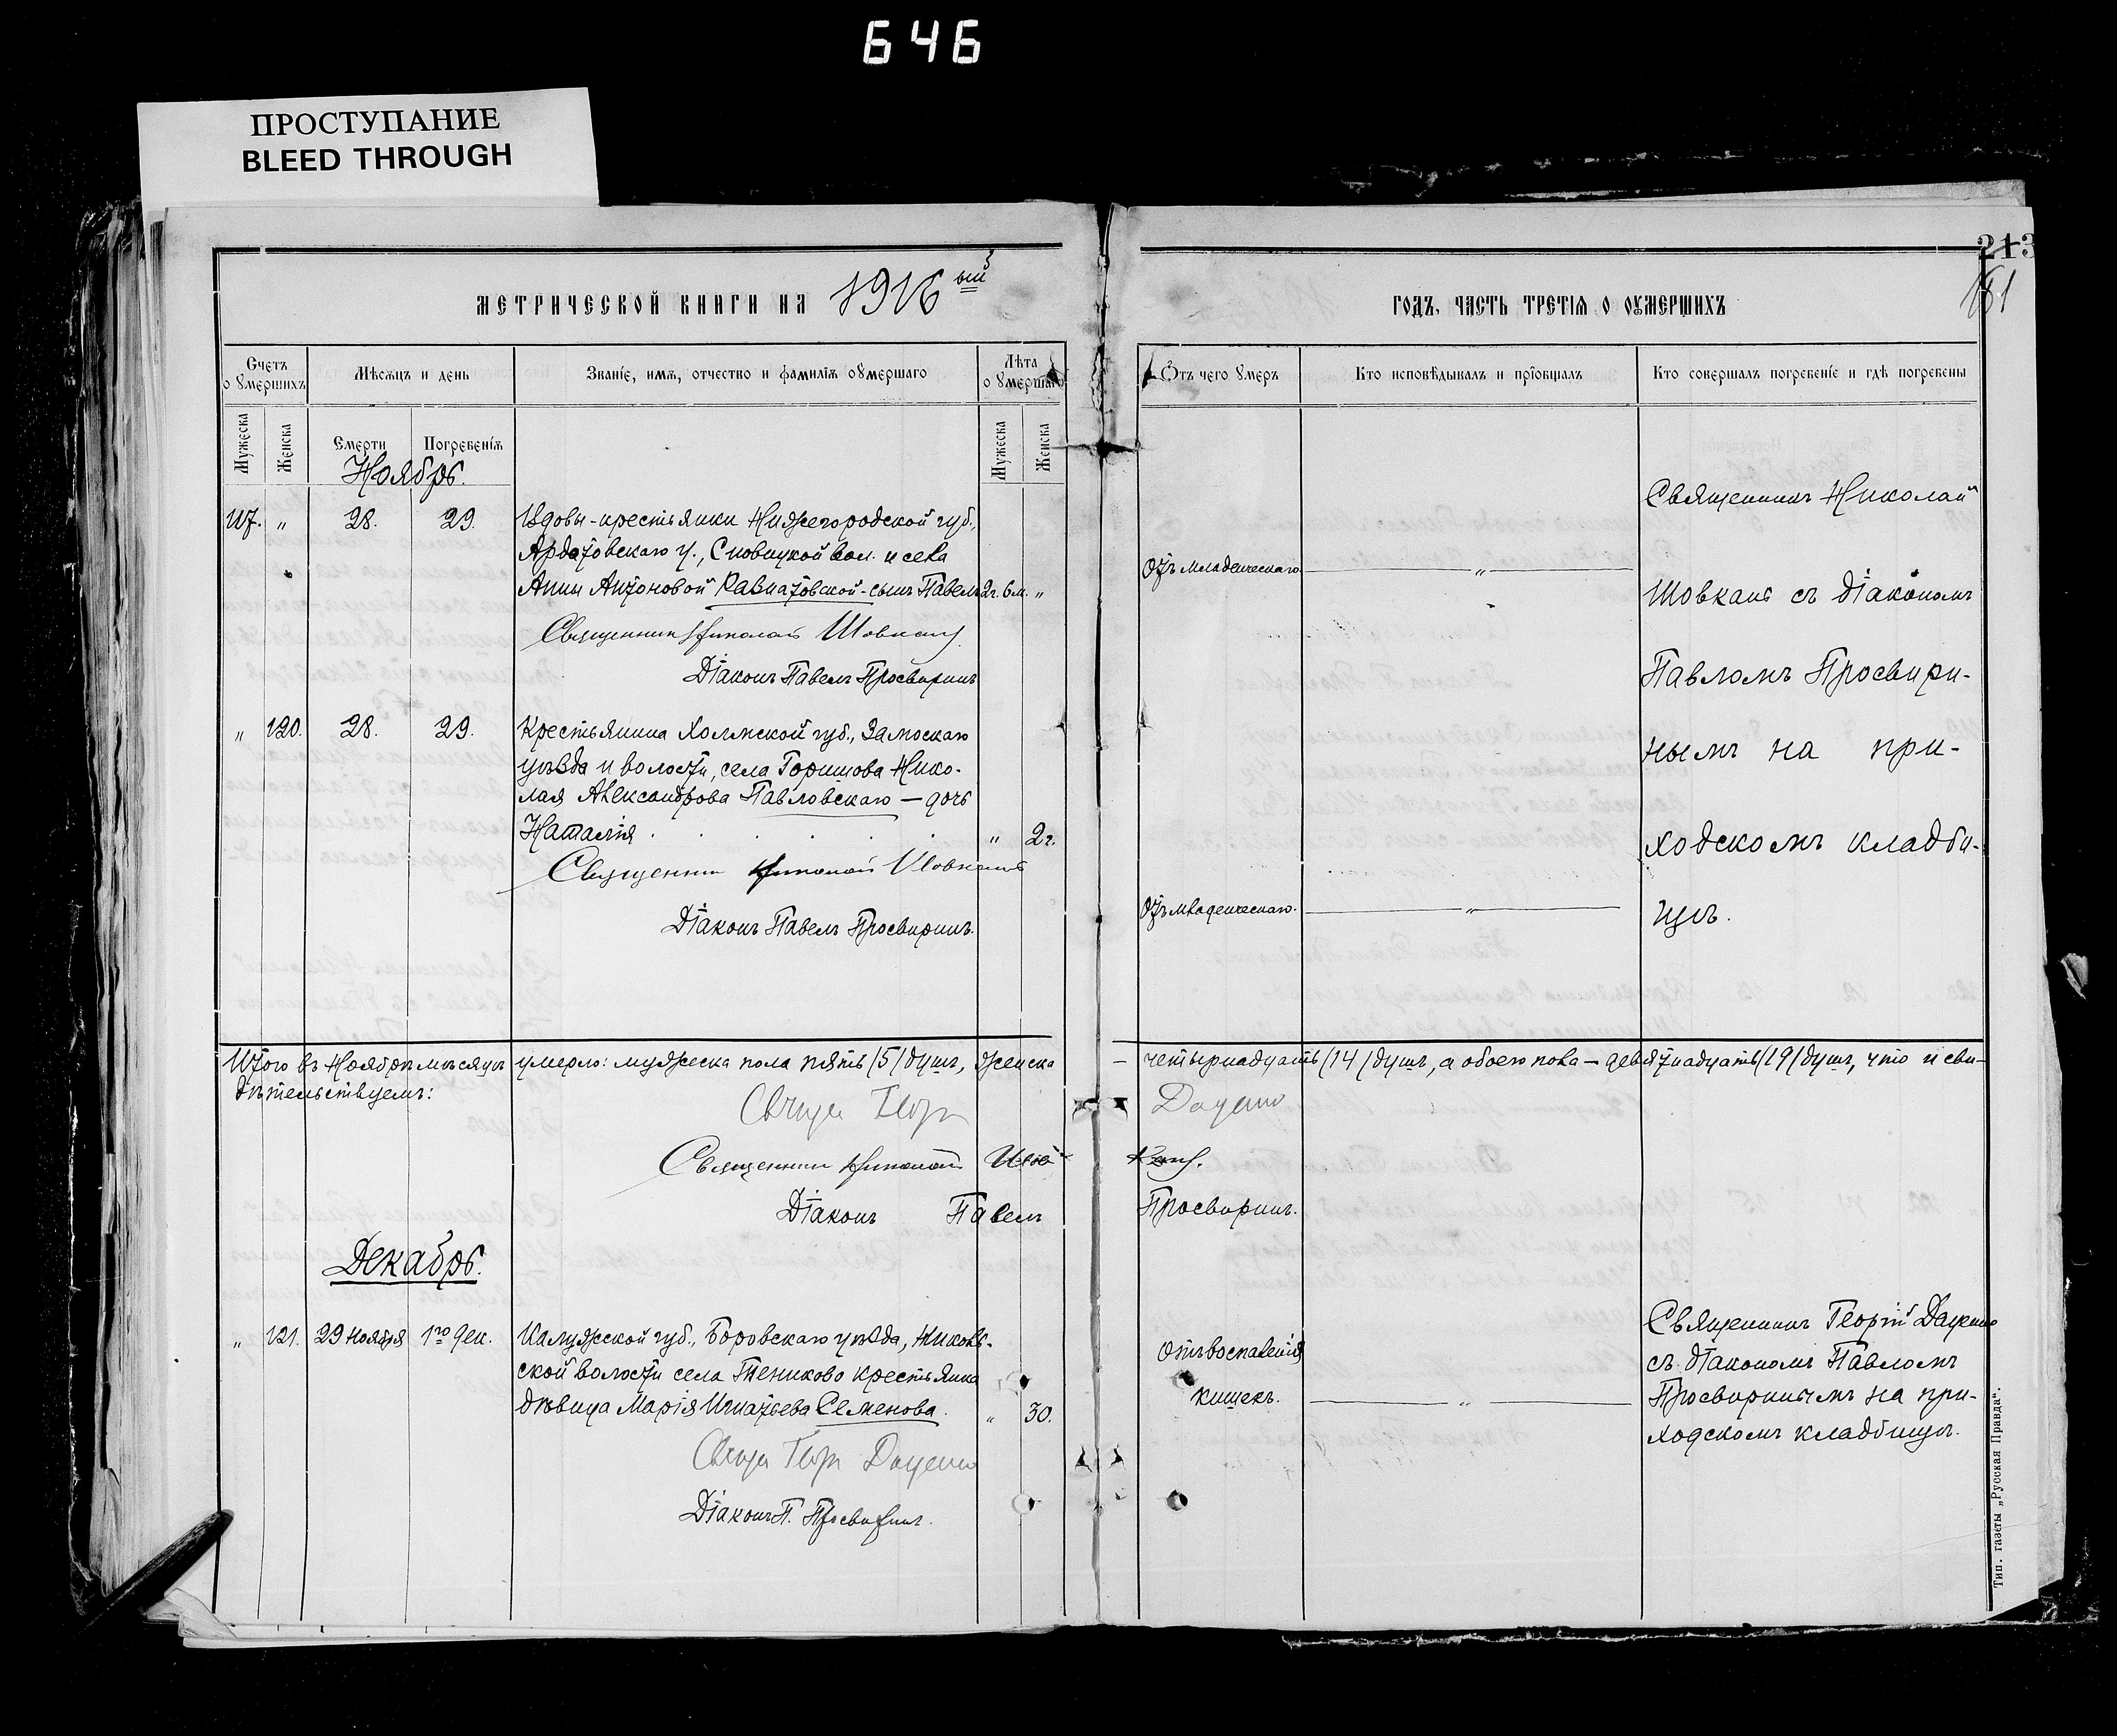 646
ПРОСТУПАНИЕ
BLEED THROUGH
МЕТРИЧЕСКОЙ КНИГИ НА 1916 ый
ГОДЪ, ЧАСТЬ ТРЕТІЯ О ОУМЕРШИХЪ
213
181
Счетъ оумершихъ
Мѣсяцъ и день
Званіе, имя, отчество и фамилія оумершаго
Лѣта оумершаго
Отъ чего умеръ
Кто исповѣдывалъ и пріобщалъ
Кто совершалъ погребеніе и гдѣ погребены
Мужеска
Женска
Смерти
Погребенія
Мужеска
Женска
Ноябрь.
117. „ 28. 29. Вдовы-крестьянки Нижегородской губ.,
Ардатовскаго у., вол. и села
Анны Антоновой - сынъ Павелъ 2г. 6м. „
Священникъ Николай Шовкань
Діаконъ Павелъ Просвиринъ
Отъ младенческаго „
Священникъ Николай
Шовкань съ діакономъ
Павломъ Просвири-
нымъ на при-
ходскомъ кладби-
щѣ.
„ 120. 28. 29. Крестьянина Холмской губ., Замоскаго
уѣзда и волости, села Горишова Нико-
лая Александрова Павловскаго — дочь
Наталія . . . . . „ 2г.
Священник Николай Шовкань
Діаконъ Павелъ Просвиринъ.
Отъ младенческаго. „
Итого въ Ноябрѣ мѣсяцѣ умерло: мужеска пола пять /5/ душъ, женска — четырнадцать /14/ душъ, а обоего пола — девятнадцать /19/ душъ, что и сви-
дѣтельствуемъ:
Свящ Георг Даценко
Священник Николай Шовкань.
Діаконъ Павелъ Просвиринъ.
Декабрь.
„ 121. 29 ноября 1го дек. Калужской губ., Боровскаго уѣзда,
ской волости села крестьянка
дѣвица Марія Игнатьева Семенова. „ 30.
Свящ Георг Даценко
Діаконъ П. Просвиринъ.
Отъ воспаленія
кишекъ. „
Священникъ Георгій Даценко
съ діакономъ Павломъ
Просвиринымъ на при-
ходскомъ кладбищѣ.
Тип. газеты „Русская Правда“.